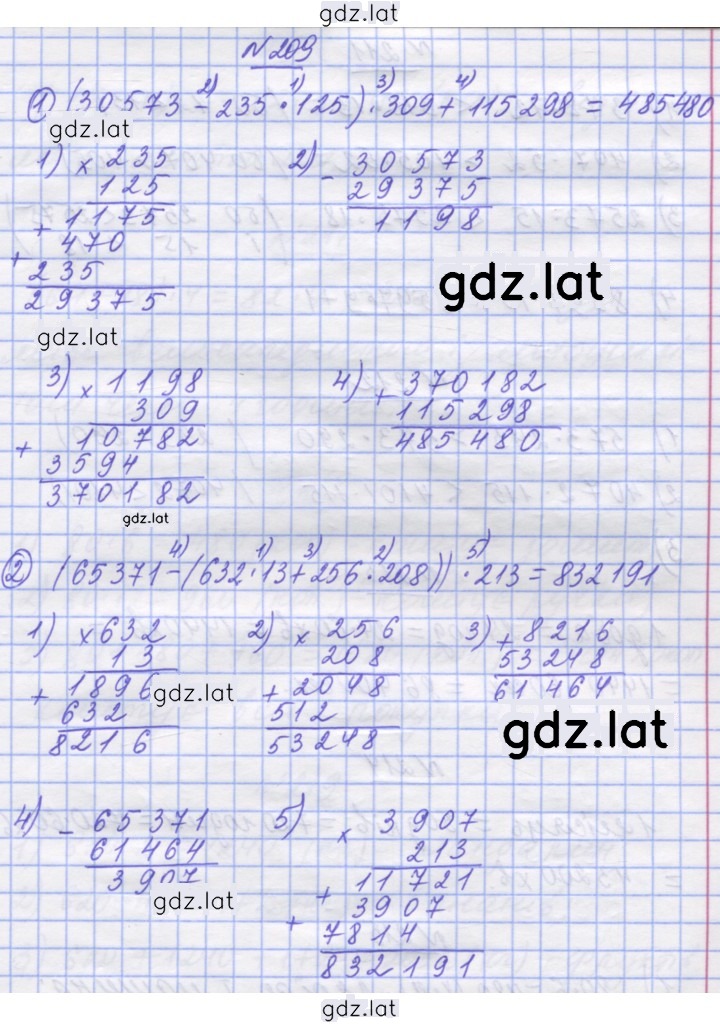 gdz.lat
N 209
① (30573 - 235 · 125) · 309 + 115298 = 485480
2) 1) 3) 4)
gdz.lat
1) × 235
125
+ 1175
470
+ 235
29375
2) - 30573
29375
1198
gdz.lat
gdz.lat
3) × 1198
309
+ 10782
3594
370182
4) + 370182
115298
485480
gdz.lat
② (65371 - (632 · 13 + 256 · 208)) · 213 = 832191
4) 1) 3) 2) 5)
1) × 632
13
+ 1896
632
8216
2) × 256
208
+ 2048
512
53248
3) + 8216
53248
61464
gdz.lat
gdz.lat
4) - 65371
61464
3907
5) × 3907
213
+ 11721
+ 3907
7814
832191
gdz.lat
gdz.lat